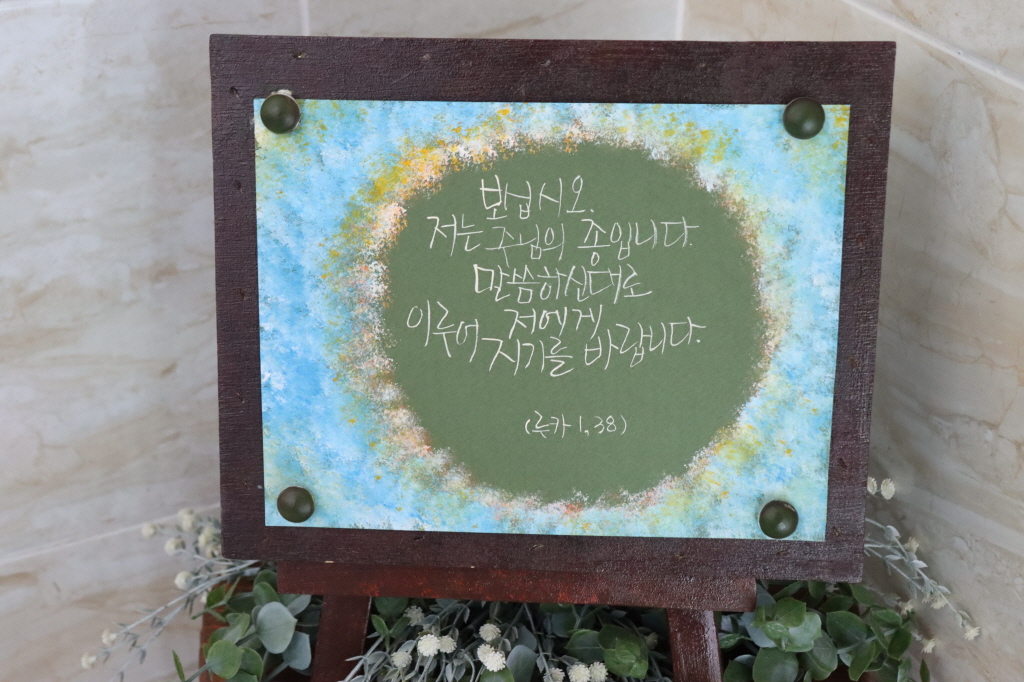 보십시오.
저는 주님의 종입니다.
말씀하신대로
저에게
이루어지기를 바랍니다.
(루카 1,38)